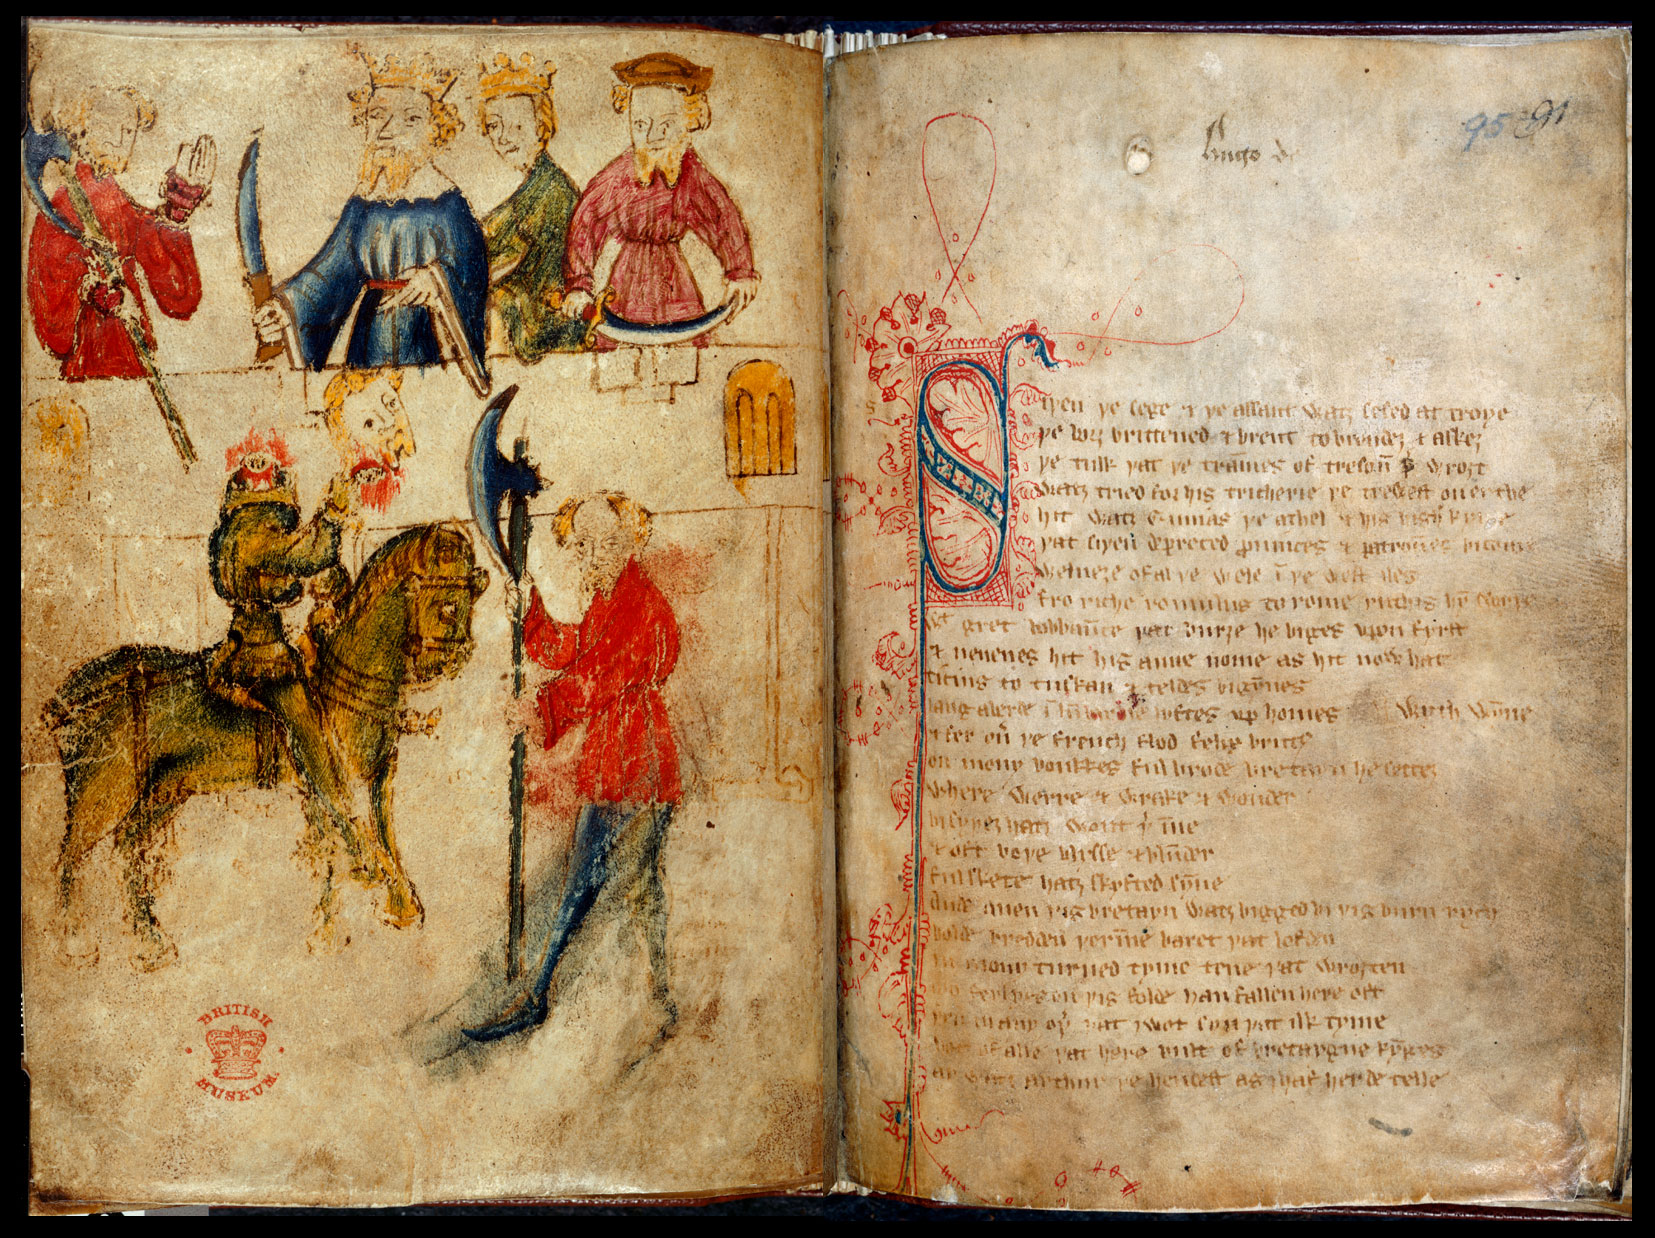 BRITISH
MUSEUM
95 91
Hugo de
Siþen þe sege & þe assaut watz sesed at troye
þe borȝ brittened & brent to brondeȝ & askez
þe tulk þat þe trāmes of tresoū þ̉ wroȝt
watz tried for his tricherie þe trewest on erthe
hit watz Ennias þe athel & his highe kynde
þat siþen depreced prouinces & patrounes bicome
welneȝe of al þe wele ī þe west iles
fro riche romulus to rome ricchis hȳ swyþe
wt gret bobbaūce þat burȝe he biges vpon fyrst
& neuenes hit his aune nome as hit now hat
ticius to tuskan & teldes bigȳnes
langaberde ī lyftes vp homes wyth wȳne
& fer oủ þe french flod felix brutus
on mony bonkkes ful brode bretayn he settez
where werre & wrake & wonder
bi syþez hatz wont þ̉ īne
& oft boþe blysse & blūder
ful skete hatz skyfted sȳne
Ande quen þis bretayn watz bigged bi þis burn rych
bolde bredden þerīne baret þat lofden
in mony turned tyme tene þat wroȝten
mo ferlyes on þis folde han fallen here oft
þen in any oþ̉ þat I wot syn þat ilk tyme
bot of alle þat here bult of bretaygne kȳges
ay watz arthur þe hendest as I haf herde telle